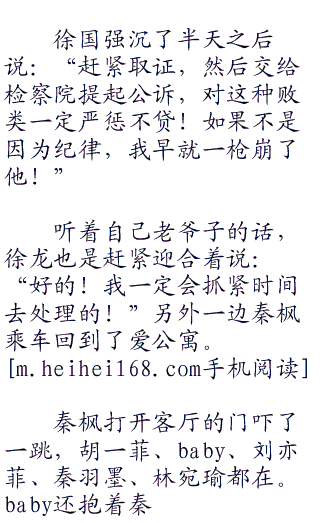 徐国强沉了半天之后
说：“赶紧取证，然后交给
检察院提起公诉，对这种败
类一定严惩不贷！如果不是
因为纪律，我早就一枪崩了
他！”
听着自己老爷子的话，
徐龙也是赶紧迎合着说：
“好的！我一定会抓紧时间
去处理的！”另外一边秦枫
乘车回到了爱公寓。
[m.heihei168.com手机阅读]
秦枫打开客厅的门吓了
一跳，胡一菲、baby、刘亦
菲、秦羽墨、林宛瑜都在。
baby还抱着秦